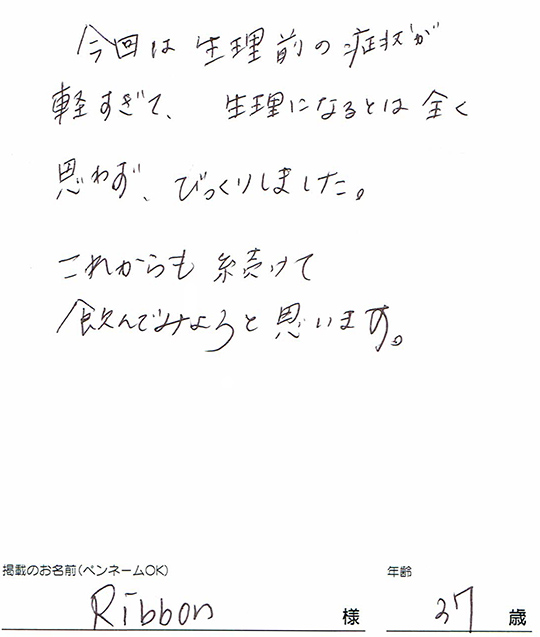 今回は生理前の症状が
軽すぎて、生理になるとは全く
思わず、びっくりしました。
これからも続けて
飲んでみようと思います。
掲載のお名前(ペンネームOK) 年齢
Ribbon 様 37 歳